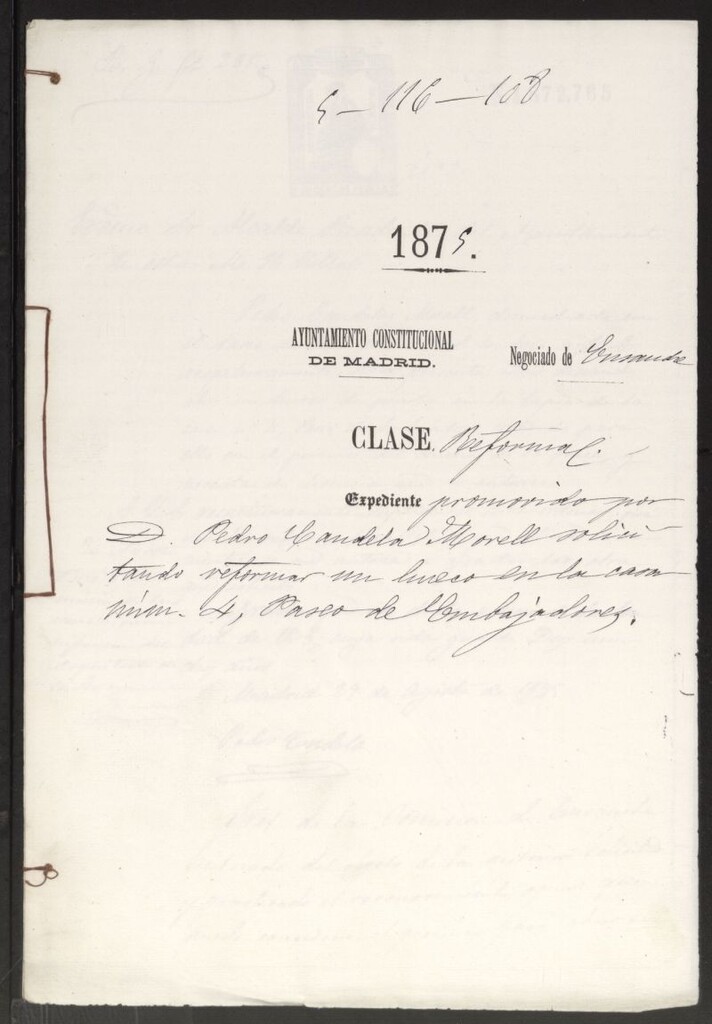 5-116-108
1875.
AYUNTAMIENTO CONSTITUCIONAL
DE MADRID.
Negociado de Ensanche
CLASE. Reformas.
Expediente promovido por
D. Pedro Candela Morell solici
tando reformar un hueco en la casa
núm. 4, Paseo de Embajadores.